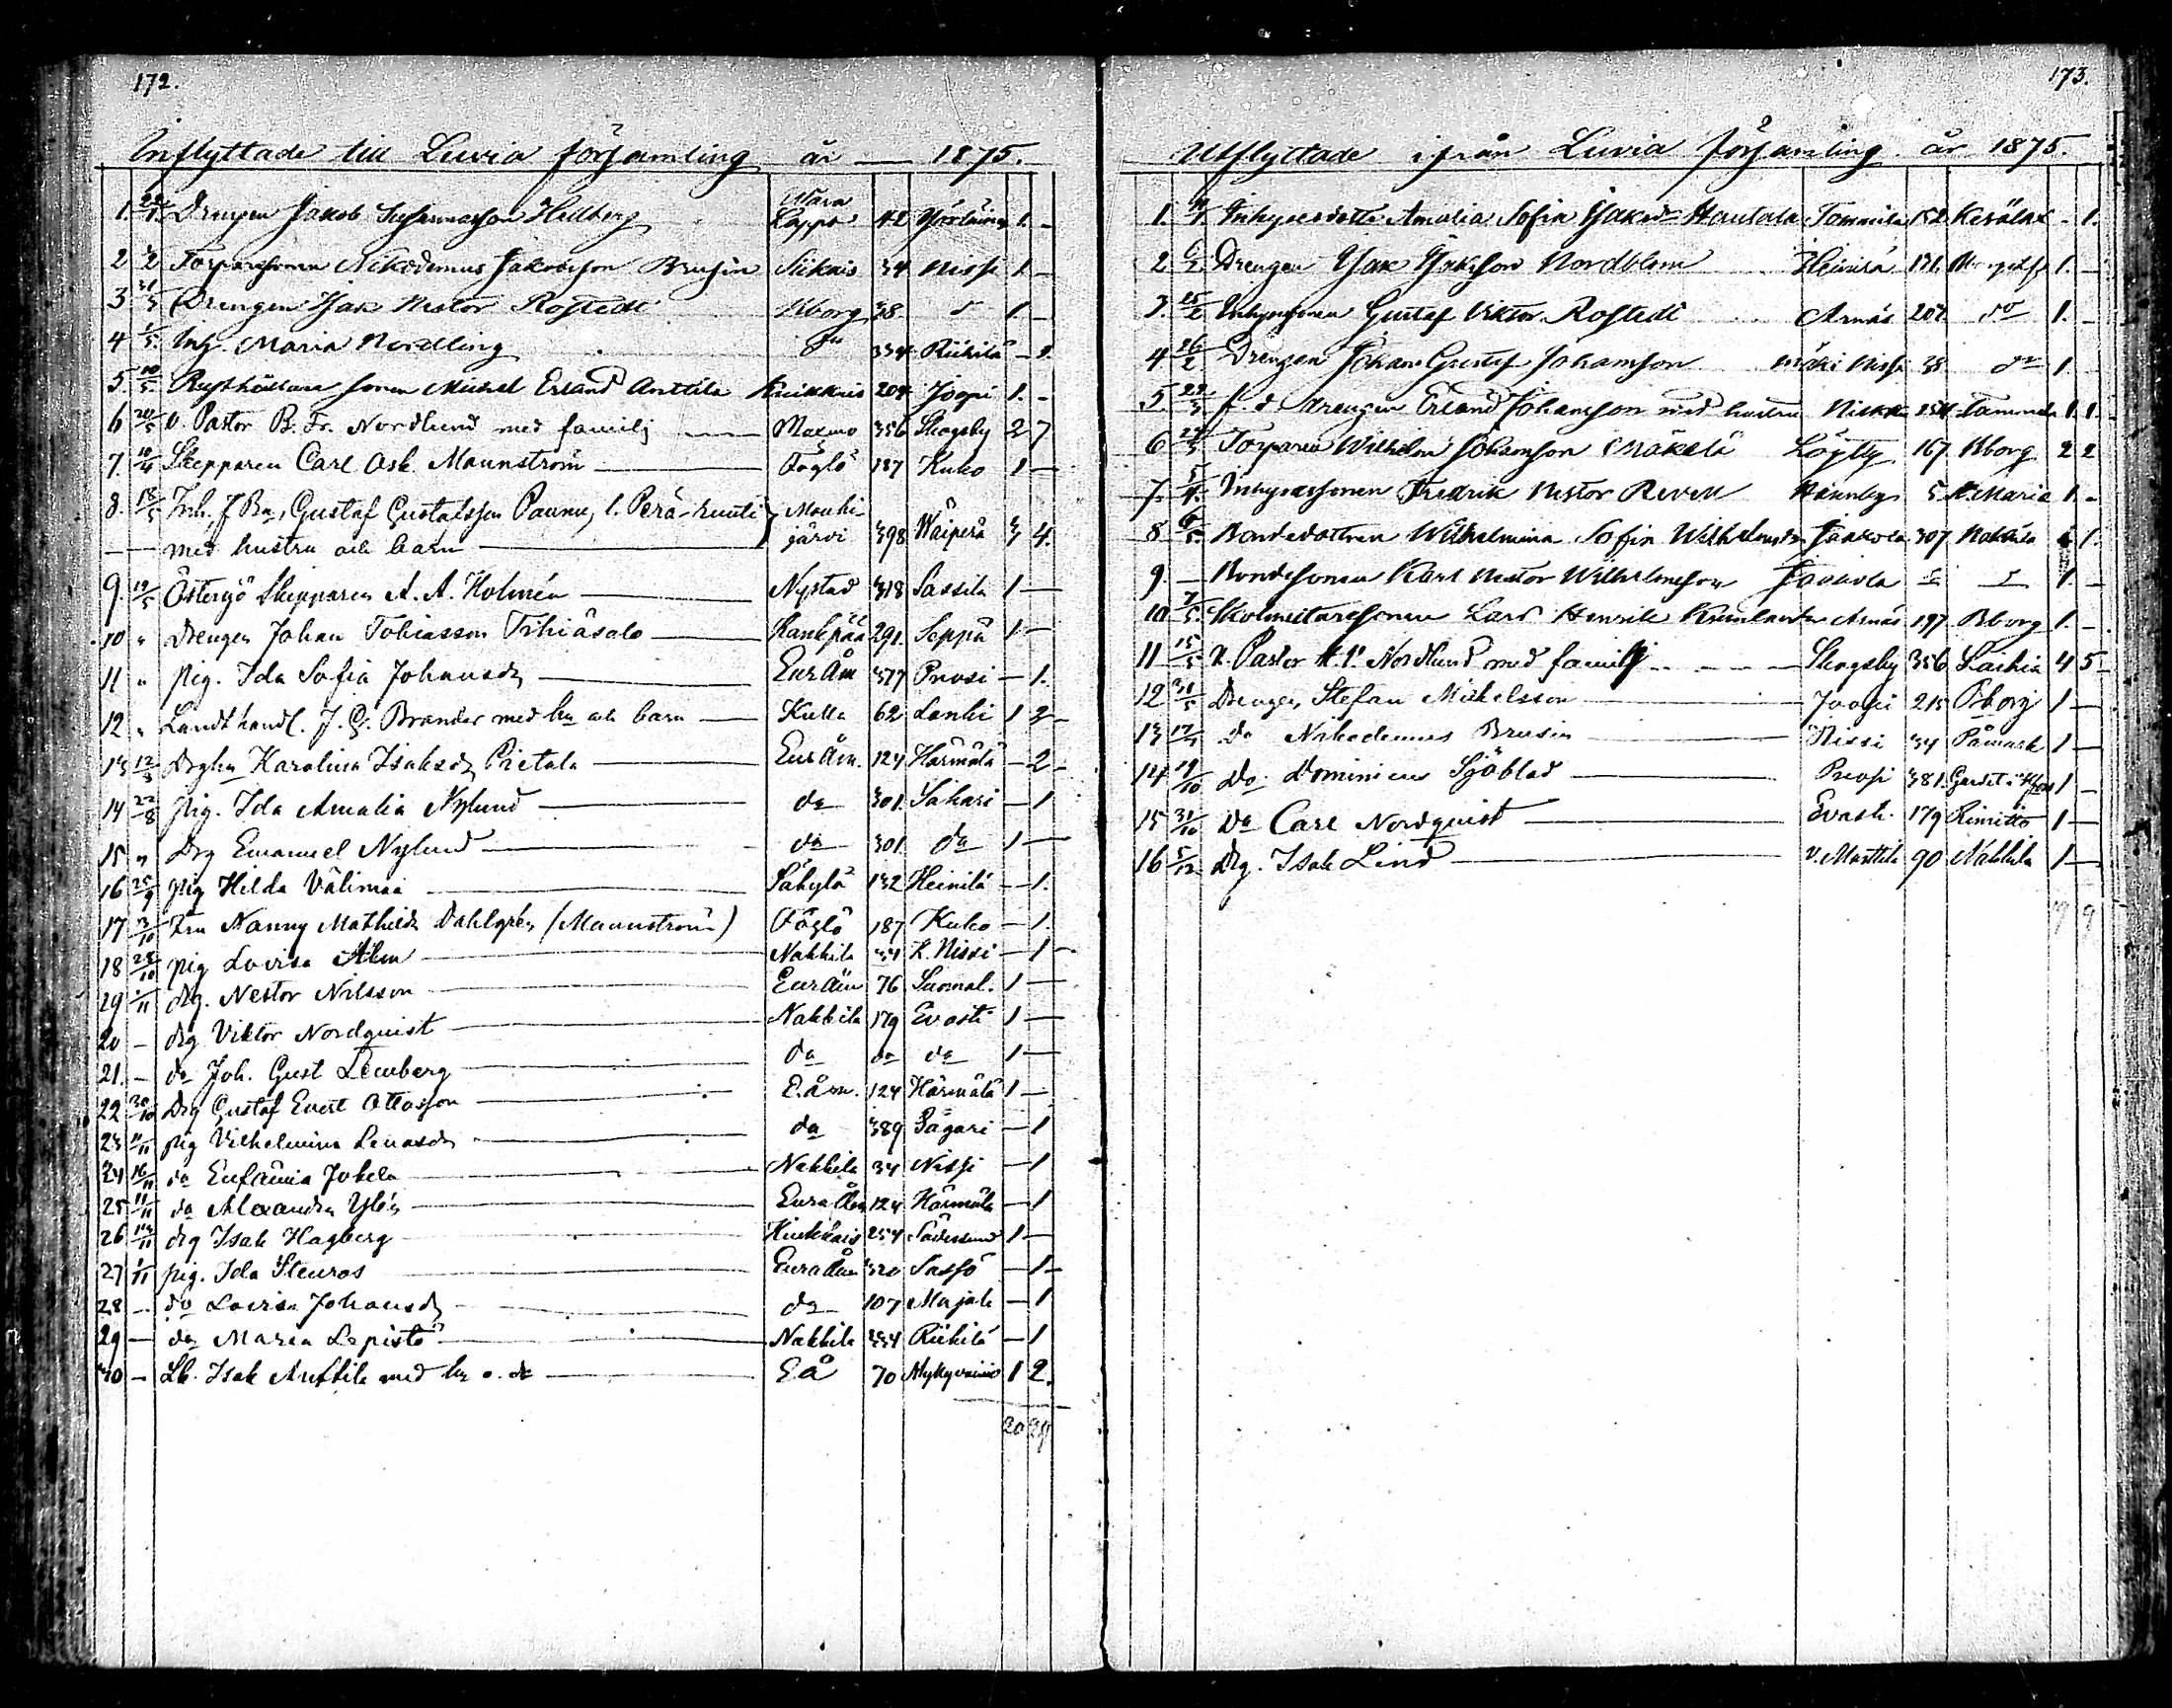 172.
Inflyttade till Luvia församling år — 1875.
1. Drengen Jakob Hellberg Lappo 42 1. -
2 1/2 Torparesonen Nikodemus Jakobsson Brusin Siikais 34 Nissi 1 -
3 31/3 Drengen Isak Nestor Rostedt Bborg 38 1. -
4 1/5. Inh. Maria Nordling 334 Riihilä - 1.
5. 10/5. Rusthållare sonen Mickel Erland Anttila Kiukkais 204 Joopi 1. -
6 20/5 v. Pastor B. Fr. Nordlund med familj Maxmo 356 Skogsby 2 7
7. 10/4 Skepparen Carl Osk Maunström Föglö 187 Kuko 1 -
8. 18/5 Inh. Gustaf Gustafsson Paunu, l. Perä-runti Mouhi-
- - med hustru och barn järvi 398 Waiperä 3 4.
9. 19/5 Östersjö Skepparen A. A. Holmén Nystad 318 Sassila 1 -
10 " Drengen Johan Tobiasson Tihiäsalo Kankpää 291. Seppä 1 -
11 " pig. Ida Sofia Johansdr Eur Åm 377 Preusi - 1.
12 " Landthandl. J. G. Brander med hu och barn Kulla 62 Lanki 1 2 -
13 12/3 Karolina Isaksdr Pietala Eur Åm. 124 Härmälä - 2 -
14 22/8 pig. Ida Amalia Nylund do 301. Sahari - 1
15 " Drg Emanuel Nylund do 301 do 1 -
16 25/9 pig Hilda Välimaa Säkylä 132 Heinilä - 1.
17 3/10 Fru Nanny Mathilda Dahlgrén (Maunström) Föglö 187 Kuko - 1.
18 28/10 pig Lovisa Alm Nakkila 34 L. Nissi - 1 -
29 1/11 drg. Nestor Nilsson Eur Åm 76 Suomal. 1 -
20 - drg Viktor Nordquist Nakkila 179 Evasti 1 -
21. - do Joh. Gust Lemberg do do do 1 -
22 30/10 Drg Gustaf Evert Ottosson E. åm. 124 Härmälä 1 -
23 11/11 pig Vilhelmina Lenasdr do 389 Pägari - 1
24 16/11 do Eufämia Jokela Nakkila 34 Nissi - 1
25 11/11 do Alexandra Ylén Eura Åm 124 Härmälä - 1
26 14/11 drg Isak Hagberg Kiukkais 254 Södersund 1 -
27 1/11 pig. Ida Stenros Eura Åm 320 Sassi - 1 -
28 - do Lovisa Johansdr do 107 Marjak - 1
29 - do Maria Lepistö Nakkila 334 Riihilä - 1
30 - Lb. Isak Anttila med hu o. dr E å 70 Mykyvainio 1 2.
20 29
173.
Utflyttade ifrån Luvia församling år 1875.
1. Inhysesdottr Amalia Sofia Hautala Tommila 152 Kesälax - 1.
2 6/2. Drengen Isak Isaksson Nordblom Heinilä 131. 1. -
3. 25/2 Inhysesonen Gustaf Viktor Rostedt Arnäs 207 do 1. -
4 26/2 Drengen Johan Gustaf Johansson Mäki Nissi 38 do 1
5. 29/3 f. d. drengen Erland Johansson med hustru 254 Tammela 1. 1.
6 Torparen Wilhelm Johansson Mäkelä Löytty 167. Bborg 2 2
7. 5/4. Inhysessonen Fredrik Nestor Revell Hannby 5 St. Marie 1. -
8 6/5. Bondedottren Wilhelmina Sofia Wilhelmsdr Jaakola 307 Nakkila 1.
9. - Bondesonen Karl Nestor Wilhelmsson Jaakola 1. -
10 7/5. Lars Henrik Arnäs 197 Bborg 1. -
11 15/5 V. Pastor Nordlund med familj Skogsby 356 Laihia 4 5
12 31/5 Drengen Stefan Mickelsson Joopi 215 Bborg 1 -
13 do Nikodemus Brusin Nissi 34 Påmark 1 -
14. 19/10 do. Dominicus Sjöblad Preusi 381. 1 -
15 31/10 do Carl Nordquist Evasti. 179 Rimitto 1 -
16 5/12 drg. Isak Lind V. Marttila 90 Nakkila 1 -